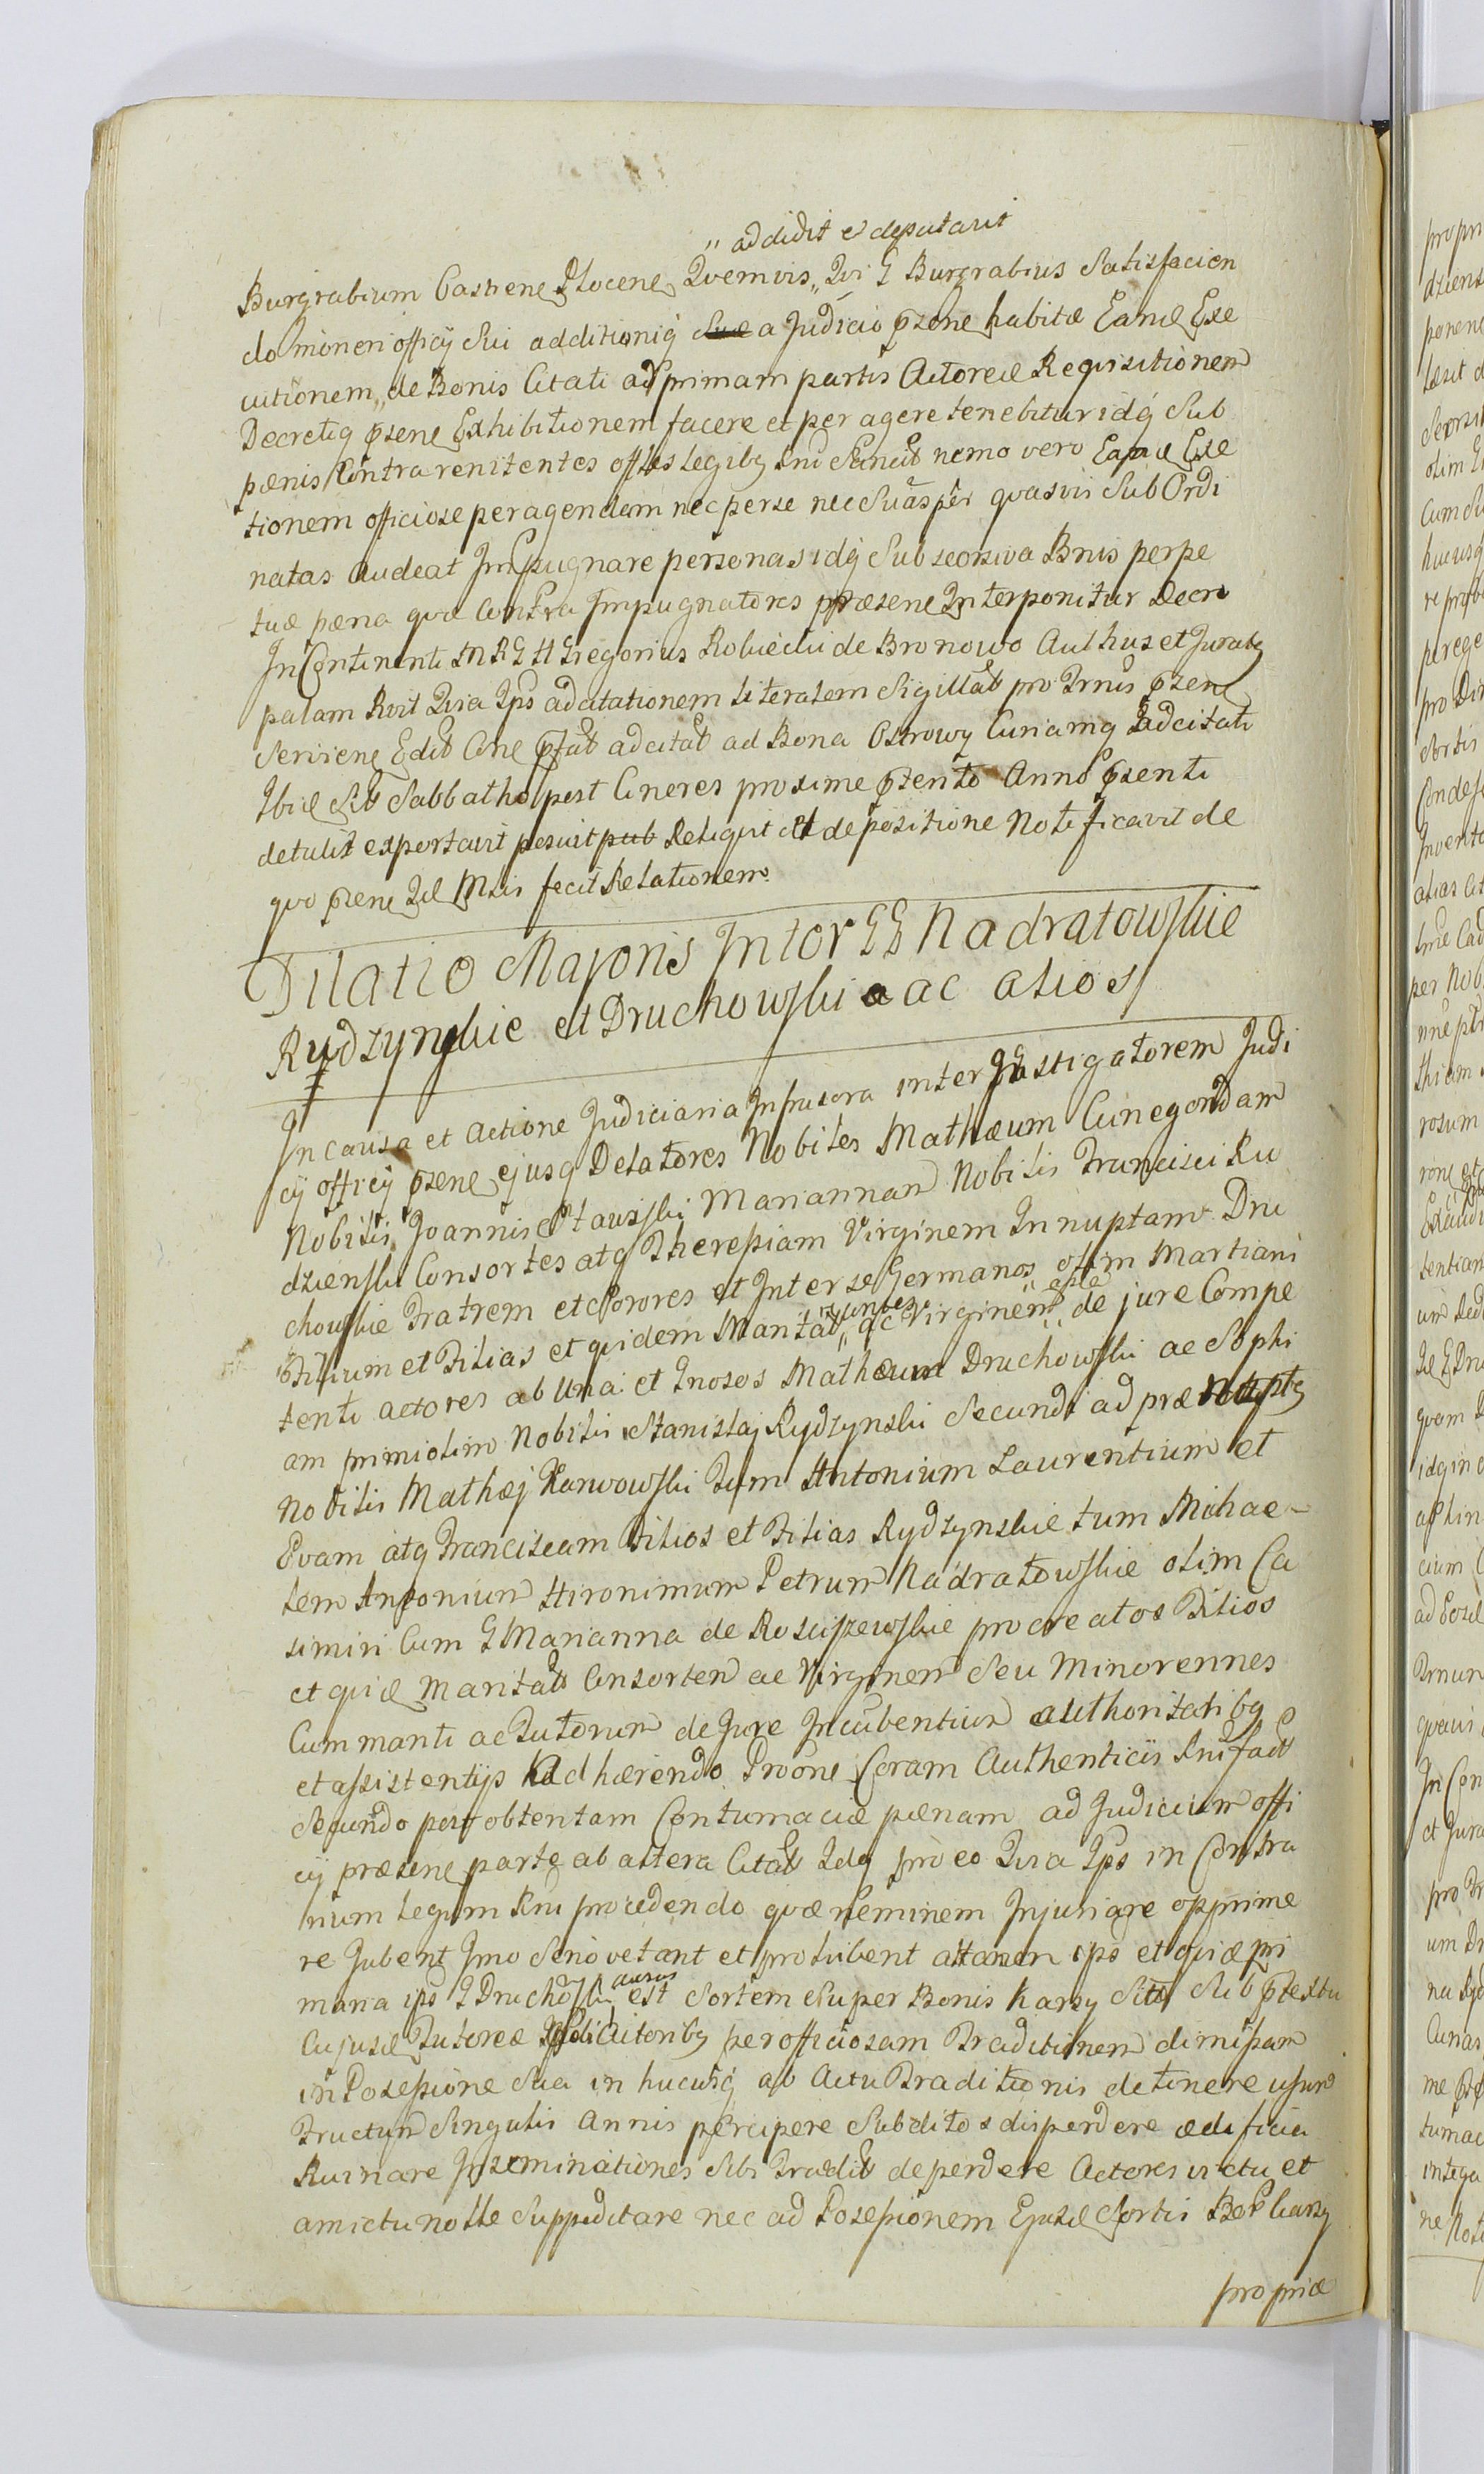 „ addidit et deputavit
Burgrabium Castrene Plocene Quemvis „ Qvi G Burgrabius Satisfacien
do moneri officij Sui additioniq Suæ a Judicio pzene habitæ Eand Exe
cutionem „ de Bonis Citati ad primam partis Actoreæ Reqvisitionem
Decretiq pzene Exhibitionem facere et per agere tenebitur idq Sub
pænis Contra renitentes offles legibq Rni Sancit nemo vero Eand Exe
tionem officiose peragendam nec per se nec Suas per qvasvis Sub Ordi
natas audeat Impugnare personas idq Sub seorsiva Bnis perpe
tuæ pæna qvæ Contra Impugnatores præsene Interponitur Decre
In Continenti MRGH Gregorius Robiecki de Bronowo Authus et Juratq
palam Rvit Qvia Ips ad citationem literalem Sigillat pro Trnis pzene
Serviene Edit Cone pfat ad citat ad Bona Ostrowy Curiamq ad citati
Ibid Sit Sabbatho post Cineres proxime pzenti Anno pzenti
detulit exportavit posuit pub Reliqvit et de positione Notificavit de
qvo pzene Jud Mtis fecit Relationem
Dilatio Majoris Inter GG Nadratowskie
Rydzynskie et Druchowski a ac alios
In causa et Actione Judiciaria Infrascra inter Instigatorem Judi
cij officij pzene ejusq Delatores Nobiles Mathæum Cunegondam
Nobilis Joannis Stawski Mariannan Nobilis Francisci Ru
dzienski Consortes atq Theresiam Virginem Innuptam Dru
chowskie Fratrem et Sorores et Inter se Germanos olim Martiani
Filium et Filias et qvidem Maritat „ ac Virginem „ de jure Compe
tenti actores ab Una et Gnosos Mathæum Druchowski ac Sophi
am primi olim Nobilis Stanislaj Rydzynski Secundi ad præ
Nobilis Mathæj Karwowski Tum Antonium Laurentium et
Evam atq Franciscam Filios et Filias Rydzynskie tum Michae-
lem Antonium Hironimum Petrum Nadratowskie olim Ca
simiri Cum G Marianna de Rosciszewskie procreatos Filios
et qvid Maritat Consorten ac Virginen Seu Minorennes
Cum mariti ac Tutorum de Jure Incubentium authoritatibq
et assistentijs adhærendo Prvone Coram Authenticis Rni fact
Secundo post obtentam Contumaciæ pænam ad Judicium offi
cij præsene parte ab altera Citat Idq pro eo Qvia Ips in Contra
rium legum Rni procedendo qvæ neminem Injuriare opprime
re Jubent Imo Serio vetant et prohibent attamen ips et qvid pri
maria ips G Druchowski ausus est Sortem Super Bonis Karsy Sitt Sub ptextu
Cujusd Tutoreæ Actoribq per officiosam Traditionem dimissam
in Possessione Sua in hucusq ab Actu Traditionis detinere usum
Fructum Singulis Annis percipere Subditos disperdere ædificia
Ruinare Inseminationes Sibi Tradit deperdere Actores victu et
amictu nolle Suppeditare nec ad Possessionem Ejusd Sortis Bor Carsy
propriæ